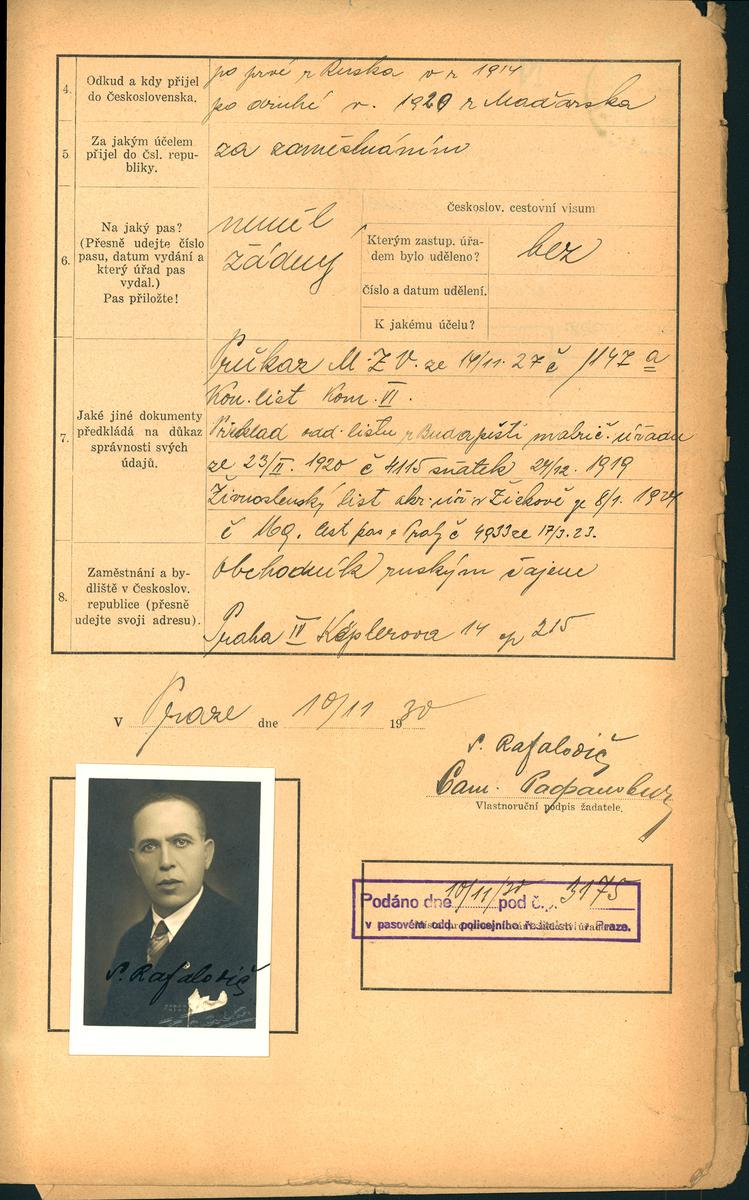 4. Odkud a kdy přijel
do Československa.
po prvé z Ruska v r 1914
po druhé v. 1920 z Maďarska
5. Za jakým účelem
přijel do čsl. repu-
bliky.
za zaměstnáním
6. Na jaký pas?
(Přesně udejte číslo
pasu, datum vydání a
který úřad pas
vydal.)
Pas přiložte!
neměl
žádný
Českoslov. cestovní visum
Kterým zastup. úřa-
dem bylo uděleno?
bez
Číslo a datum udělení.
K jakému účelu?
7. Jaké jiné dokumenty
předkládá na důkaz
správnosti svých
údajů.
Průkaz M.Z.V. ze 14/11.27 č 1147 a
Kon. list Kom. VI.
Překlad odd. listu z Budapešti matrič. úřadu
ze 23/II. 1920 č 4115 sňatek 24/12. 1919
Živnostenský list okr. úř v Žižkově z 8/1. 1924
č 169. list pas v Praze č 4933 ze 17/3.23.
8. Zaměstnání a by-
dliště v Českoslov.
republice (přesně
udejte svoji adresu).
obchodník ruským čajem
Praha IV Keplerova 14 čp 215
V Praze dne 10/11 1930
S. Rafalovič
Сам. Рафалович
Vlastnoruční podpis žadatele.
S. Rafalovič
Podáno dne 10/11/30 pod č. 3175
v pasovém odd. policejního ředitelství v Praze.